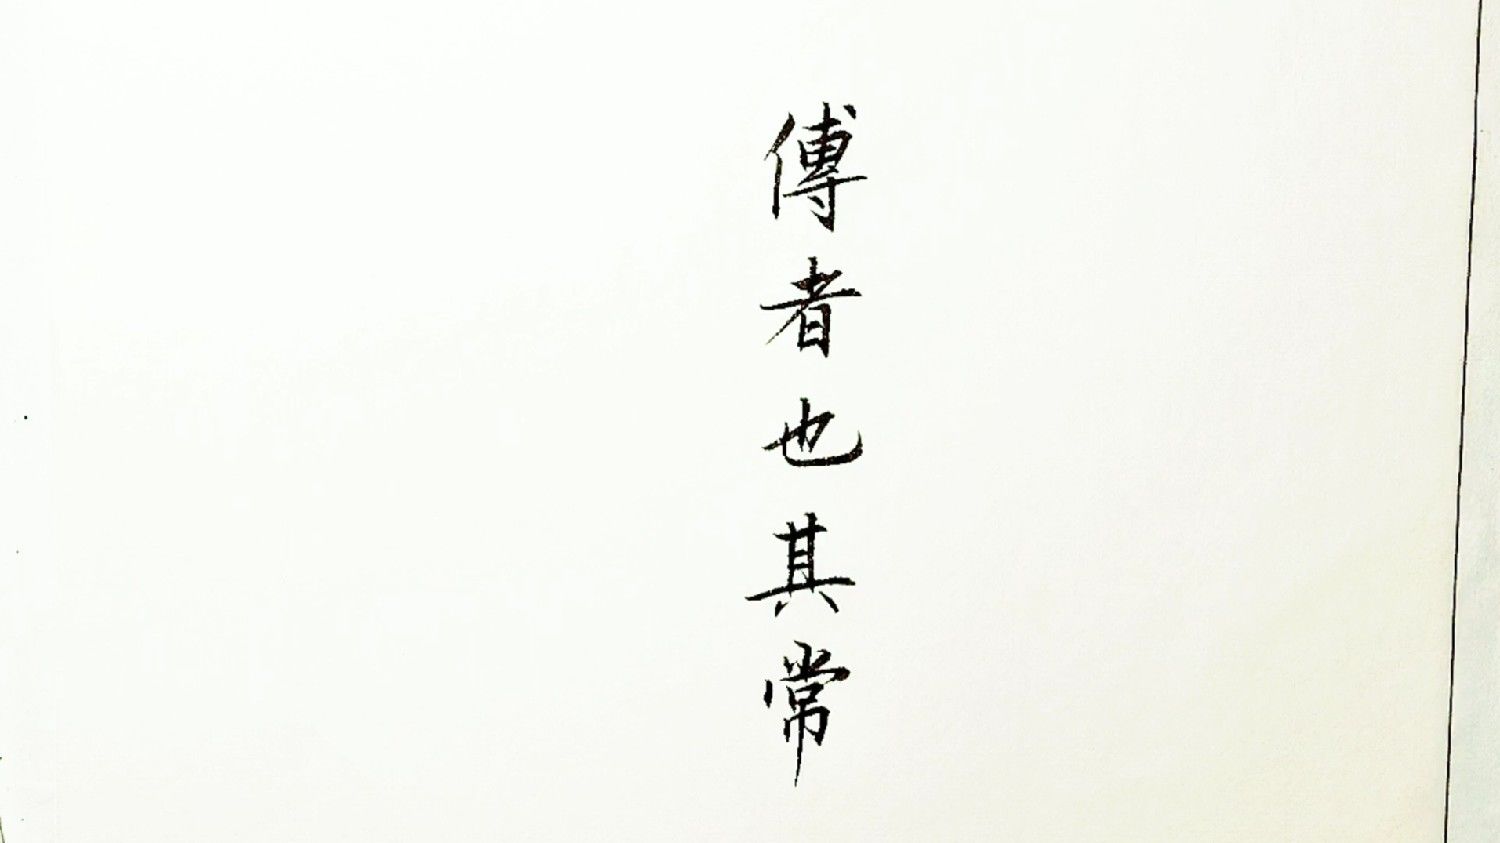 傅者也其常